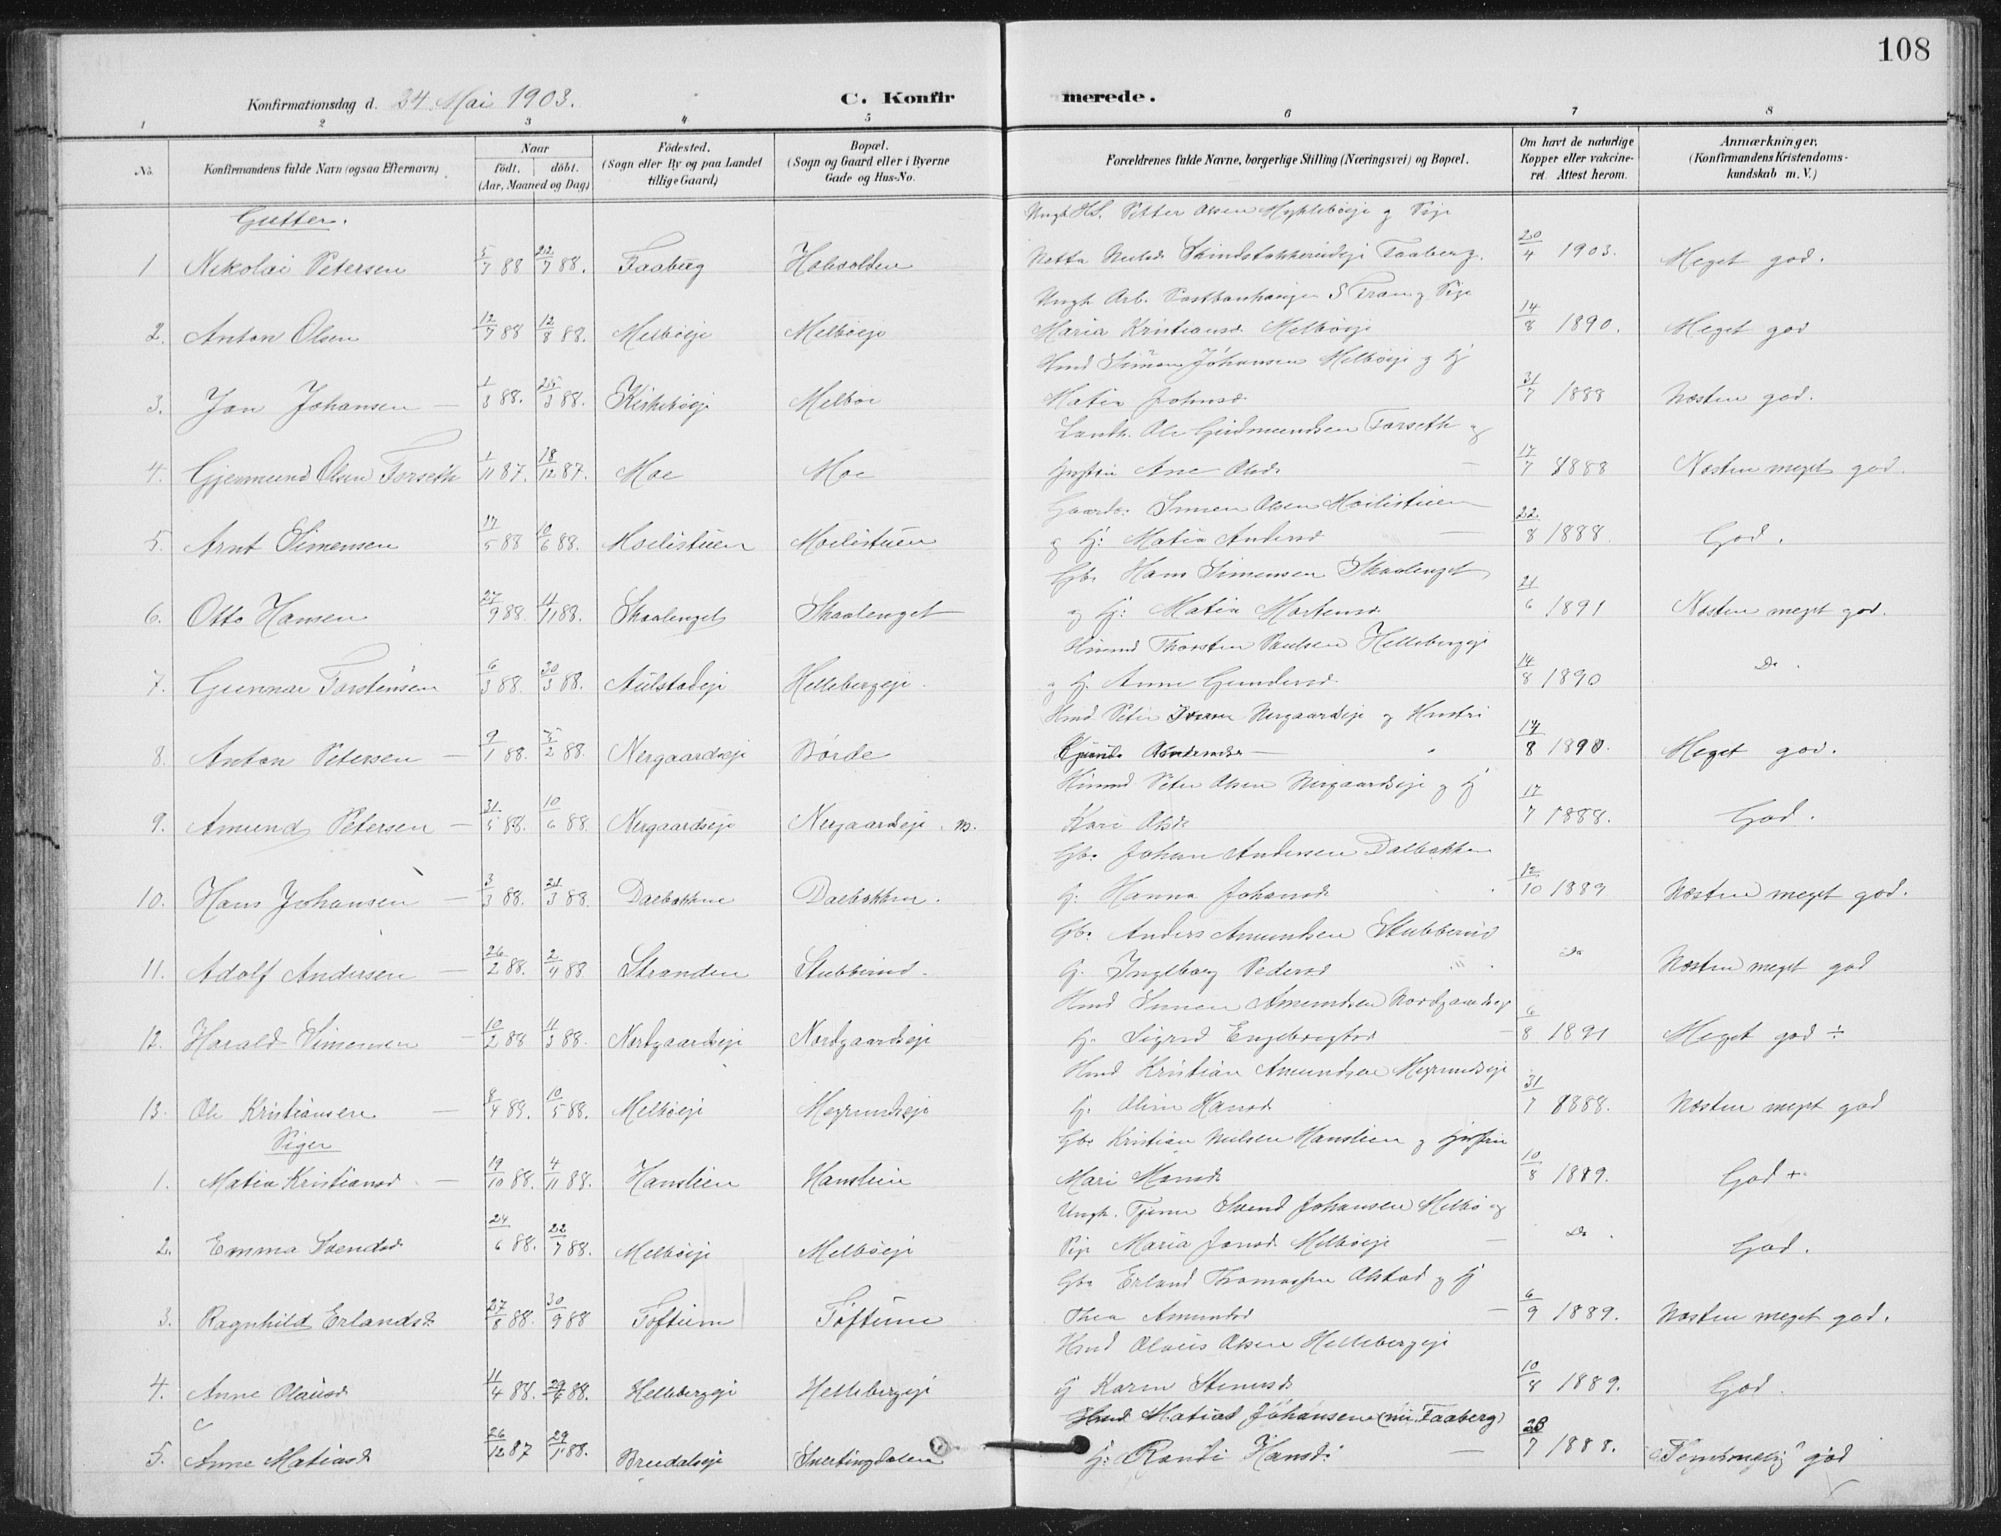 108
Konfirmationsdag d. 24 Mai 1903.
C. Konfirmerede.
1 2 3 4 5 6 7 8
No.
Konfirmandens fulde Navn (ogsaa Efternavn)
Naar
født. døbt.
(Aar, Maaned og Dag)
Fødested.
(Sogn eller By og paa Landet
tillige Gaard)
Bopæl.
(Sogn og Gaard eller i Byerne
Gade og Hus-No.
Forældrenes fulde Navne, borgerlige Stilling (Næringsvei) og Bopæl.
Om havt de naturlige
Kopper eller vakcine-
ret. Attest herom.
Anmærkninger.
(Konfirmandens Kristendoms-
kundskab m. V.)
Gutter.
Petter Olsen
1 Nikolai Petersen 5/7 88 22/7 88. Faaberg Faaberg. 20/4 1903. Meget god.
Ungk. Arb.
2. Anton Olsen 12/7 88 12/8 88. Melbøeje Melbøeje Maria Kristiansd. Melbøeje 14/8 1890. Meget god
Hmd Simen Johansen Melbøeje og Hj
3. Jan Johansen 1/3 88. 25/3 88. Kirkebøeje Melbøe Matea Johnsd. 31/7 1888 Næsten god.
Landh. Ole Gudmundsen Forseth og
4. Gjermund Olsen Forseth 1/11 87. 18/12 87. Moe Moe Ane Olsd. 17/7 1888 Næsten meget god.
Gaardbr. Simen Olsen Moelistuen
5. Arnt Simensen 17/5 88 10/6 88. Moelistuen Moelistuen og Hj: Matea Andersd 22/8 1888. God.
Gbr. Hans Simensen Skaalenget
6. Otto Hansen 27/9 88. 4/11 88. Skaalenget Skaalenget og Hj: Matea Mortensd 21/6 1891 Næsten meget god.
Thorsten Paulsen Hellebergeje
7. Gunnar Torstensen 6/3 88. 30/3 88. Aulstadeje Hellebergeje. og Hj. Anne Gundersd. 14/8 1890 Do.
Hmd Peter Nergaardseje og Hustri
8. Anton Petersen 9/1 88. 5/2 88. Nergaardseje Børde 14/8 1890. Meget god.
Peter Olsen Nergaardseje og Hj
9. Amund Petersen 31/5 88. 10/6 88. Nergaardseje Nergaardseje. Kari Olsd. 17/7 1888. God.
Gbr. Johan Andersen Dalbakken
10. Hans Johansen 3/3 88. 21/3 88. Dalbakken Dalbakken. Hj. Hanna Johansd. 12/10 1889 Næsten meget god.
Gbr. Anders Amundsen Stubberud
11. Adolf Andersen 26/2 88. 2/4 88 Stranden Stubberud. Hj. Ingeborg Pedersd Do Næsten meget god
Hmd Simen Amundsen Nordgaardseje
12. Harald Simensen 10/2 88 11/3 88. Nordgaardseje Nordgaardseje Hj. Sigrid Engebregtsd 6/8 1891 Meget god ÷
Hmd Kristian Amundsen Megrundseje
13. Ole Kristiansen 8/4 88. 10/5 88. Melbøeje Megrundseje Hj. Oline Hansd. 31/7 1888. Næsten meget god
Piger
Gbr. Kristian Nielsen Hanslien og
1. Matea Kristiansd. 19/10 88. 4/11 88. Hanslien Hanslien Mari Hansd. 10/8 1889. God +
Ungk. Tjener Svend Johansen Melbø og
2. Emma Svendsd 24/6 88. 22/7 88. Melbøeje Melbøeje Pige Maria Jonsd. Melbøeje Do. God.
Gbr Erland Thomassen Olstad og Hj
3. Ragnhild Erlandsd. 27/8 88. 30/9 88 Toftum Toftum Thea Amundsd 6/9 1889. Næsten meget god.
Hmd Olaus Olsen Hellebergeje
4. Anne Olausd 11/4 88. 29/4 88. Hellebergeje Hellebergeje Hj Karen Simensd. 10/8 1889. God.
Hmd Matias Johansen (nu Faaberg)
5. Anne Matiasd. 26/12 87 29/1 88. Bredalseje Snertingdalen Hj: Randi Hansd: 28/7 1888. god